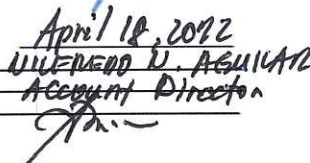 April 18, 2022
WILFREDO N. AGUILAR
Account Director